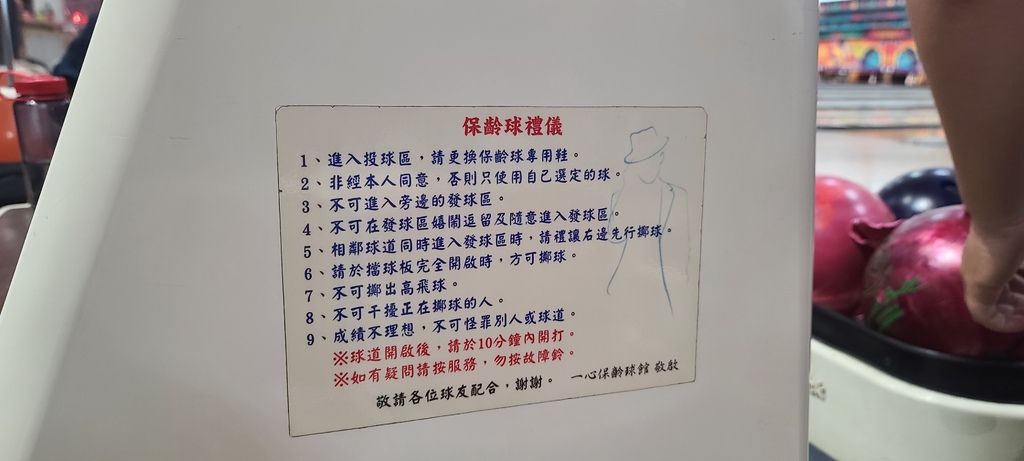 保齡球禮儀
1、進入投球區，請更換保齡球專用鞋。
2、非經本人同意，否則只使用自己選定的球。
3、不可進入旁邊的發球區。
4、不可在發球區嬉鬧逗留及隨意進入發球區。
5、相鄰球道同時進入發球區時，請禮讓右邊先行擲球。
6、請於擋球板完全開啟時，方可擲球。
7、不可擲出高飛球。
8、不可干擾正在擲球的人。
9、成績不理想，不可怪罪別人或球道。
※球道開啟後，請於10分鐘內開打。
※如有疑問請按服務，勿按故障鈴。
敬請各位球友配合，謝謝。 一心保齡球館 敬啟